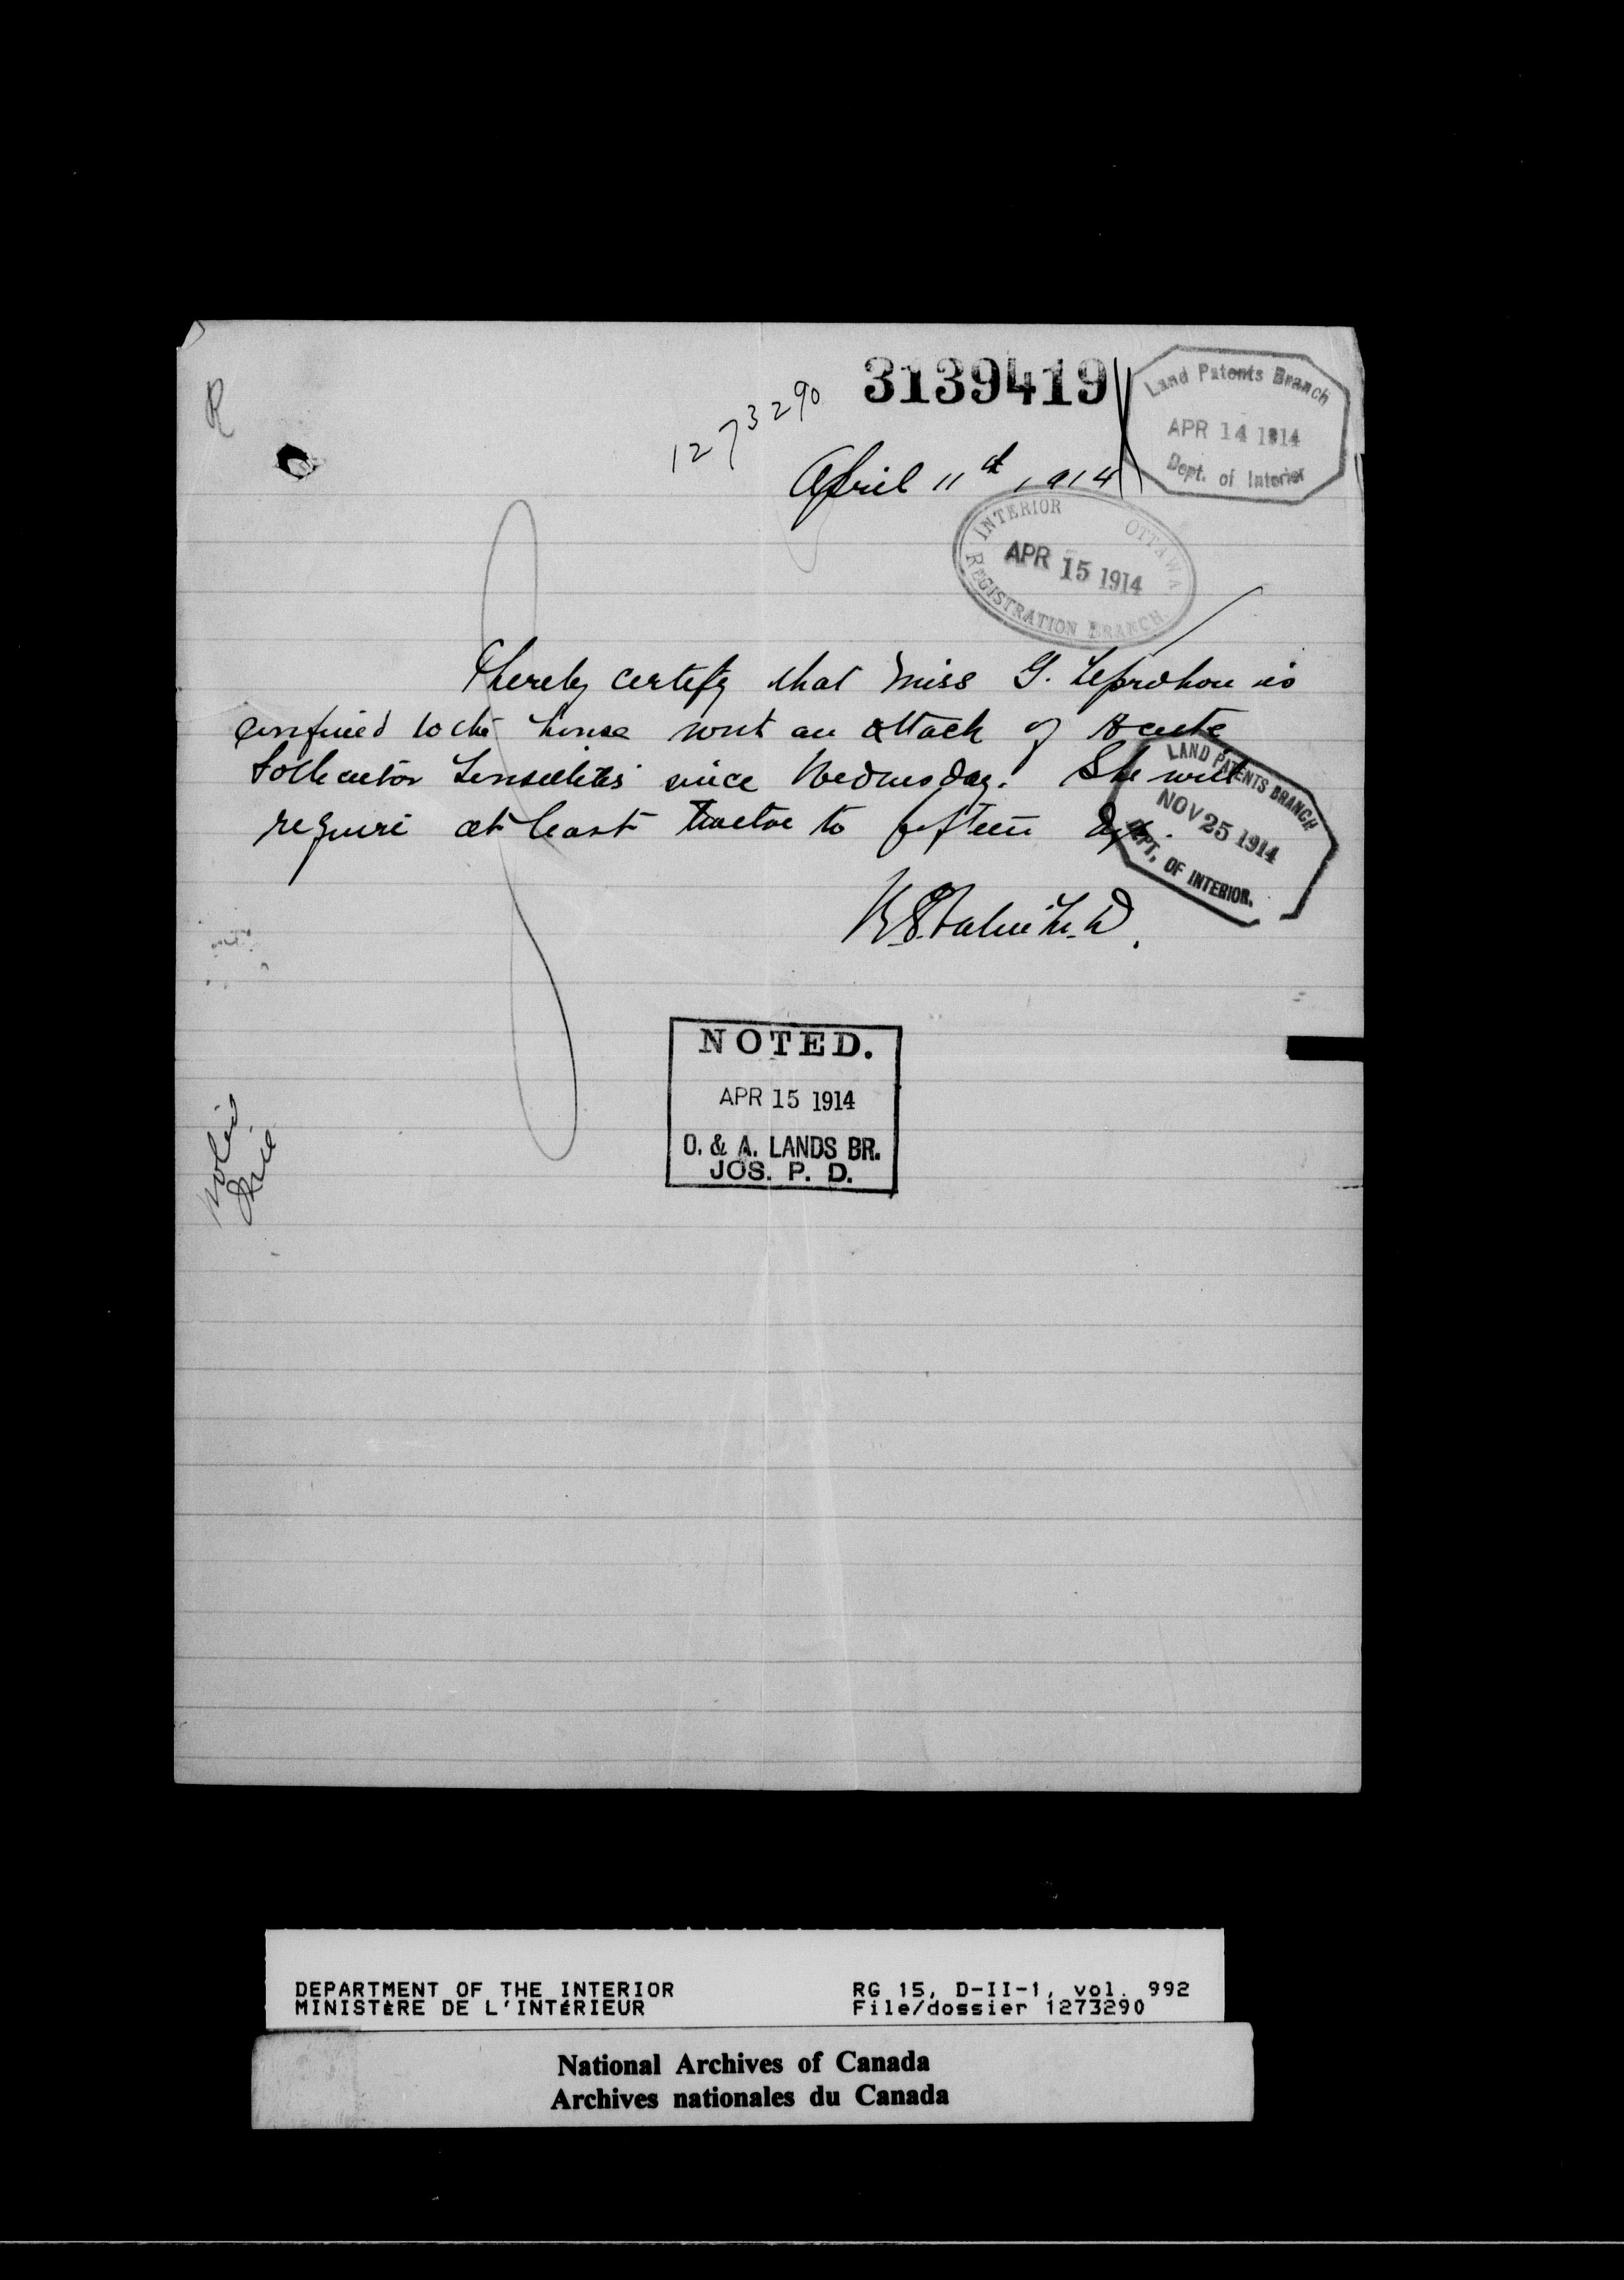 R
3139419
1273290
Land Patents Branch
APR 14 1914
Dept. of Interior
April 11th 1914
INTERIOR OTTAWA
APR 15 1914
REGISTRATION BRANCH.
I hereby certify that Miss G. Leprohon is
confined to the house with an attack of acute
Tonsilitis since Wednesday. She will
require at least twelve to fifteen dys.
LAND PATENTS BRANCH
NOV 25 1914
DEPT. OF INTERIOR.
M.D.
NOTED.
APR 15 1914
O. & A. LANDS BR.
JOS. P. D.
DEPARTMENT OF THE INTERIOR
MINISTÈRE DE L'INTÉRIEUR
RG 15, D-II-1, vol. 992
File/dossier 1273290
National Archives of Canada
Archives nationales du Canada